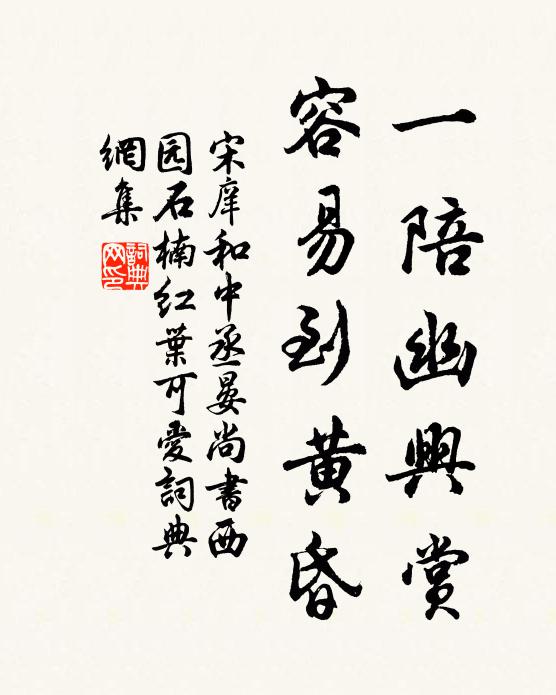 一陪幽興賞
容易到黄昏
宋庠和中丞晏尚書西
园石楠红葉可愛詞典
網集
詞典
网印